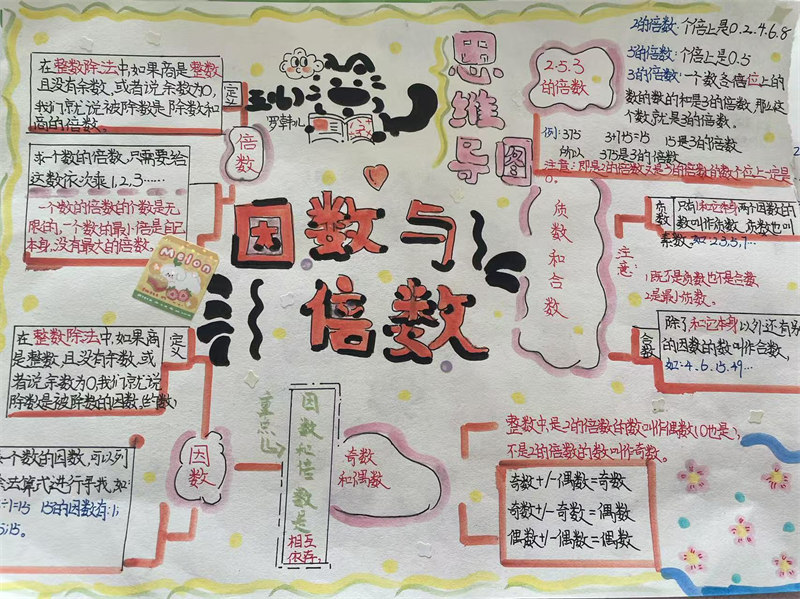 在整数除法中如果商是整数
且没有余数，或者说余数为0，
我们就说被除数是除数和
商的倍数。
定义
倍数
求一个数的倍数，只需要给
这数依次乘1,2,3……
一个数的倍数的个数是无
限的，一个数的最小倍是自己
本身，没有最大的倍数。
Melon
罗韩儿
思维导图
因数与
倍数
2.5.3
的倍数
2的倍数：个倍上是0.2.4.6.8
5的倍数：个倍上是0.5
3的倍数：一个数各倍位上的
数的数的和是3的倍数，那么这
个数就是3的倍数。
例：375 3+7+5=15 15是3的倍数
所以 375是3的倍数
质数和合数
质数
只有和它本身两个因数的
数叫作质数，质数也叫
素数。如：2,3,5,7…
注意：
1既不是质数也不是合数
2是最小质数。
合数
除了和它本身以外还有别
的因数的数叫作合数，
如：4.6.15.49…
在整数除法中，如果商
是整数，且没有余数，或
者说余数为0，我们就说
除数是被除数的因数，(约数)
定义
因数
个数的因数，可以列
法算式进行寻找，如：
÷1=15 15的因数有：1;
5;15。
重点
因数和倍数是
相互
依存。
奇数
和偶数
整数中，是2的倍数的数叫作偶数（0也是），
不是2的倍数的数叫作奇数。
奇数+/-偶数=奇数
奇数+/-奇数=偶数
偶数+/-偶数=偶数